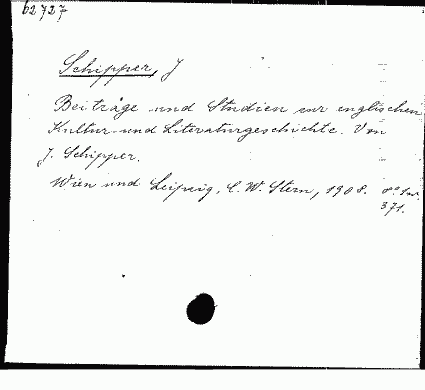 62727
Schipper, J
Beiträge und Studien zur englischen
Kultur- und Literaturgeschichte. Von
J. Schipper.
Wien und Leipzig, C. W. Stern, 1908. 8°.
371.